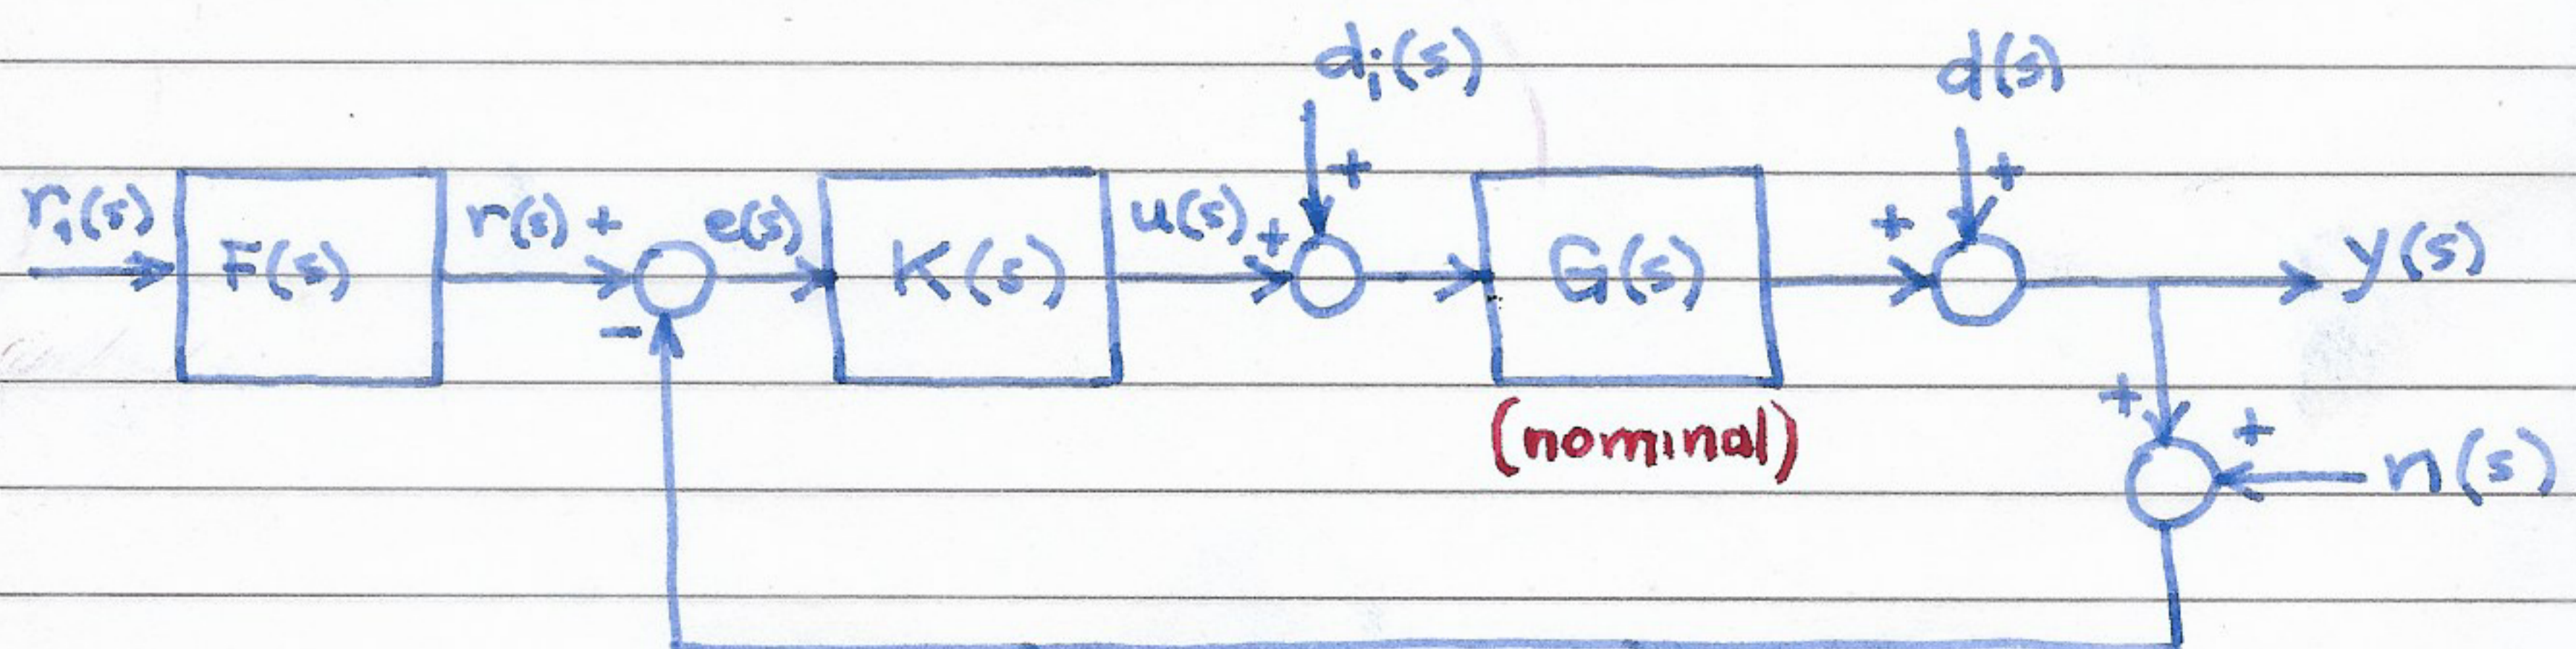 dᵢ(s) d(s)
rᵢ(s) F(s) r(s) + e(s) K(s) u(s) + + G(s) + + y(s)
-
(nominal)
+ + n(s)